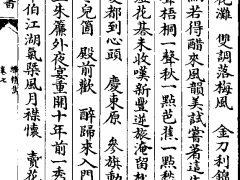 花灘　雙調落梅風　金刀利錦
若得醋來風韻美試嘗著這生
聲梧桐一聲秋一點芭蕉一點愁
燈花棊未收嘆新豐逆旅淹留枕
憂都到心頭　慶東原　參旗動
兒箇　殿前歡　醉歸來入門
上朱簾外夜宴重開十年前一秀
伯江湖氣桀風月襟懷　賣花
書